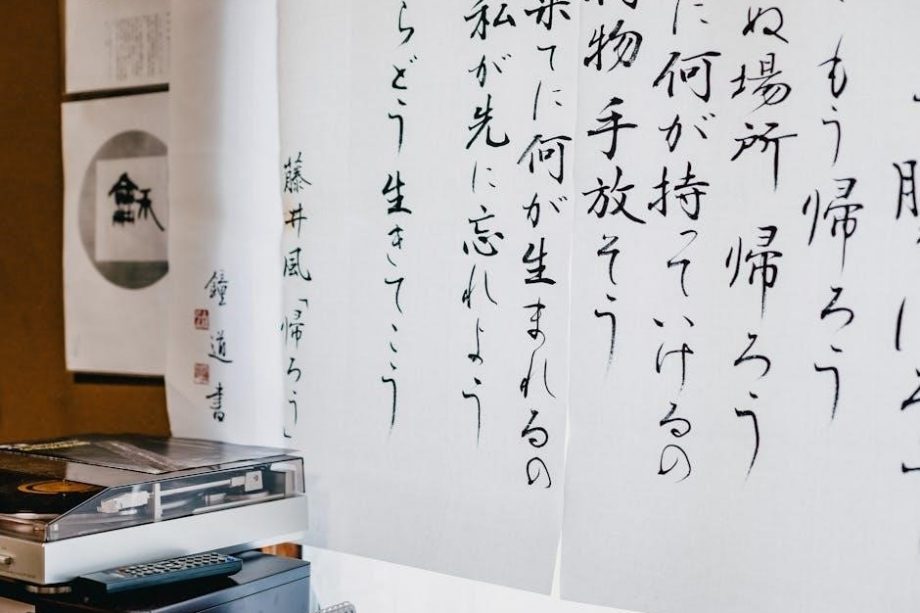 もう帰ろう
ぬ場所 帰ろう
に何が持っていけるの
物 手放そう
果てに何が生まれるの
私が先に忘れよう
らどう生きてこう
藤井風「帰ろう」
鐘道書